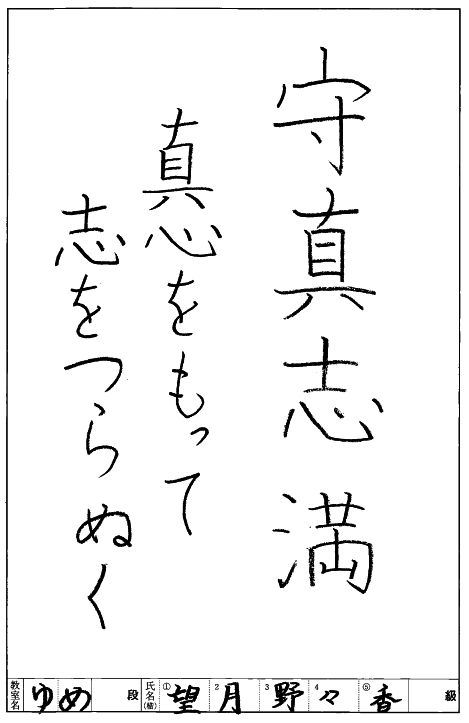 守真志満
真心をもって
志をつらぬく
教室名 ゆめ 段 氏名(姓) ① 望 2 月 3 野 4 々 ⑤ 香 級